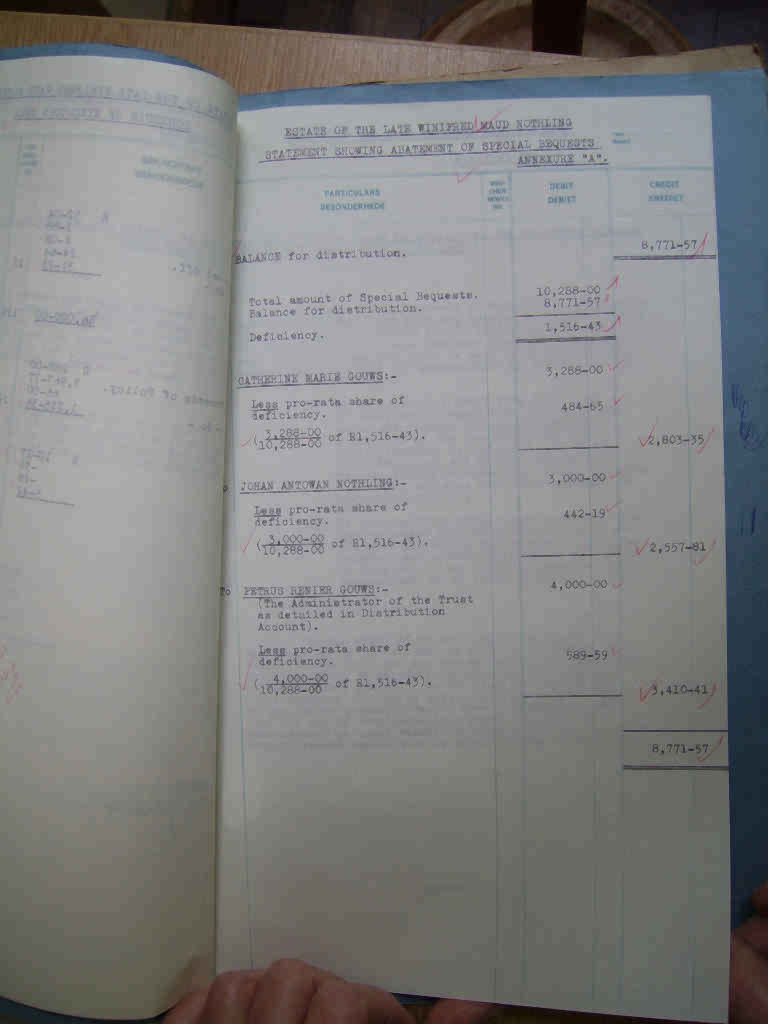 ESTATE OF THE LATE WINIFRED MAUD NOTHLING
STATEMENT SHOWING ABATEMENT OF SPECIAL BEQUESTS
ANNEXURE "A".
PARTICULARS DEBIT CREDIT
BESONDERHEDE DEBIET KREDIET
BALANCE for distribution. 8,771-57
Total amount of Special Bequests. 10,288-00
Balance for distribution. 8,771-57
Deficiency. 1,516-43
CATHERINE MARIE GOUWS:- 3,288-00
Less pro-rata share of
deficiency. 484-65
(3,288-00
10,288-00 of R1,516-43). 2,803-35
JOHAN ANTOWAN NOTHLING:- 3,000-00
Less pro-rata share of
deficiency. 442-19
(3,000-00
10,288-00 of R1,516-43). 2,557-81
To PETRUS RENIER GOUWS:- 4,000-00
(The Administrator of the Trust
as detailed in Distribution
Account).
Less pro-rata share of
deficiency. 589-59
(4,000-00
10,288-00 of R1,516-43). 3,410-41
8,771-57